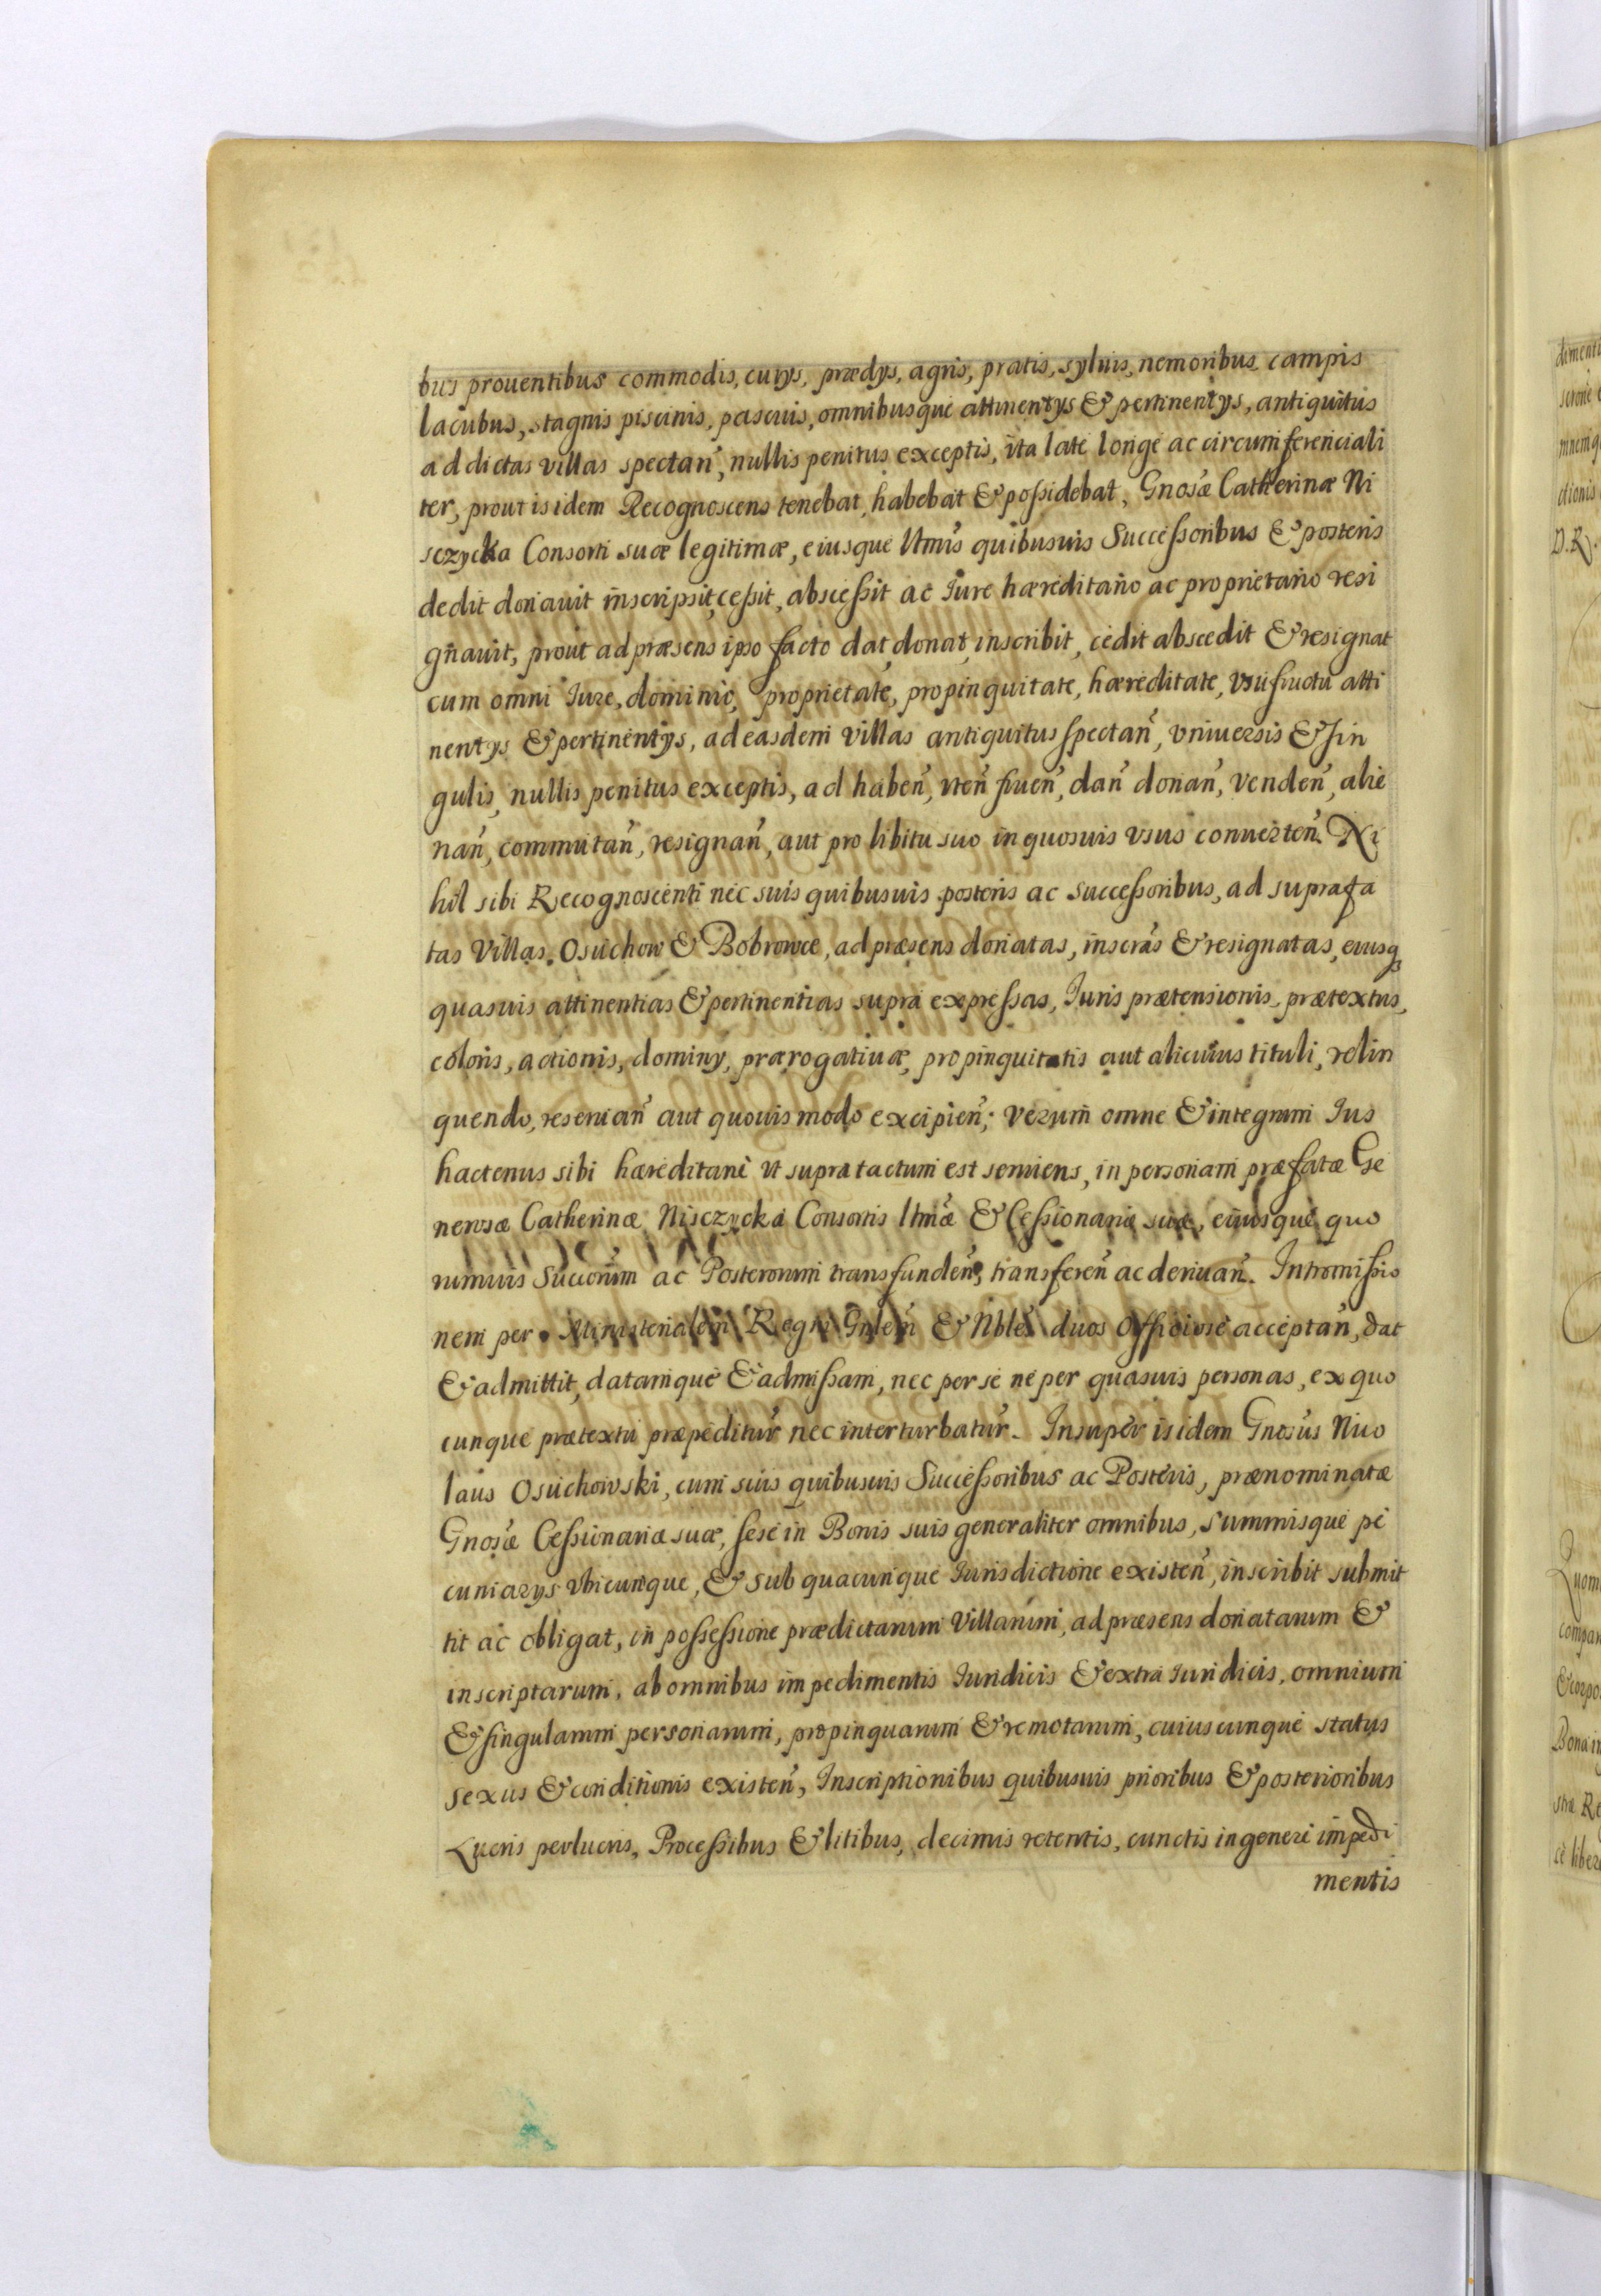 bus prouentibus commodis, curys, prædys, agris, pratis, syluis, nemoribus, campis
lacubus, stagnis piscinis, pascuis, omnibusque attinentys & pertinentys, antiquitus
ad dictas villas spectan̄, nullis penitus exceptis, ita late longe ac circumferenciali
ter, prout isidem Recognoscens tenebat, habebat & possidebat, Gnosæ Catherinæ Ni
sczycka Consorti suæ legitimæ, eiusque ltmis quibusuis Successoribus & posteris
dedit donauit inscripsit, cessit, abscessit ac Iure hæreditario ac proprietario resi
gnauit, prout ad præsens ipso facto dat donat, inscribit, cedit abscedit & resignat
cum omni Iure, dominio, proprietate, propinquitate, hæreditate, vsufructu atti
nentys & pertinentys, ad easdem villas antiquitus spectan̄, vniuersis & sin
gulis, nullis penitus exceptis, ad haben̄, vten̄ fruen̄, dan̄ donan̄, venden̄, alie
nan̄, commutan̄, resignan̄, aut pro libitu suo in quosuis vsus conuerten̄. Ni
hil sibi Recognoscenti nec suis quibusuis posteris ac successoribus, ad suprafa
tas Villas. Osuchow & Bobrowce, ad præsens donatas, inscras & resignatas, eiusq
quasuis attinentias & pertinentias supra expressas, Iuris prætensionis, prætextus,
coloris, actionis, dominy, prærogatiuæ, propinquitatis aut alicuius tituli, relin
quendo, reseruan̄ aut quouis modo excipien̄; verum omne & integrum Ius
hactenus sibi hæreditarie vt supra tactum est seruiens, in personam præfatæ Ge
nerosæ Catherinæ Nisczycka Consortis ltmæ & Cessionariæ suæ, eiusque quo
rumuis Succorum ac Posterorum transfunden̄, transferen̄ ac deriuan̄. Intromissio
nem per Ministerialem Regni Gnlem & Nbles duos officiose acceptan̄, dat
& admittit, datamque & admissam, nec per se ne per quasuis personas, ex quo
cunque prætextu præpeditur nec interturbatur. Insuper isidem Gnosus Nico
laus Osuchowski, cum suis quibusuis Successoribus ac Posteris, prænominatæ
Gnosæ Cessionariæ suæ, sese in Bonis suis generaliter omnibus, summisque pe
cuniarys vbicunque, & sub quacunque Iurisdictione existen̄, inscribit submit
tit ac obligat, in possessione prædictarum Villarum, ad præsens donatarum &
inscriptarum, ab omnibus impedimentis Iuridicis & extra Iuridicis, omnium
& singularum personarum, propinquarum & remotarum, cuiuscunque status
sexus & conditionis existen̄, Inscriptionibus quibusuis prioribus & posterioribus
Lucris perlucris, Processibus & litibus, decimis retentis, cunctis in genere impedi
mentis